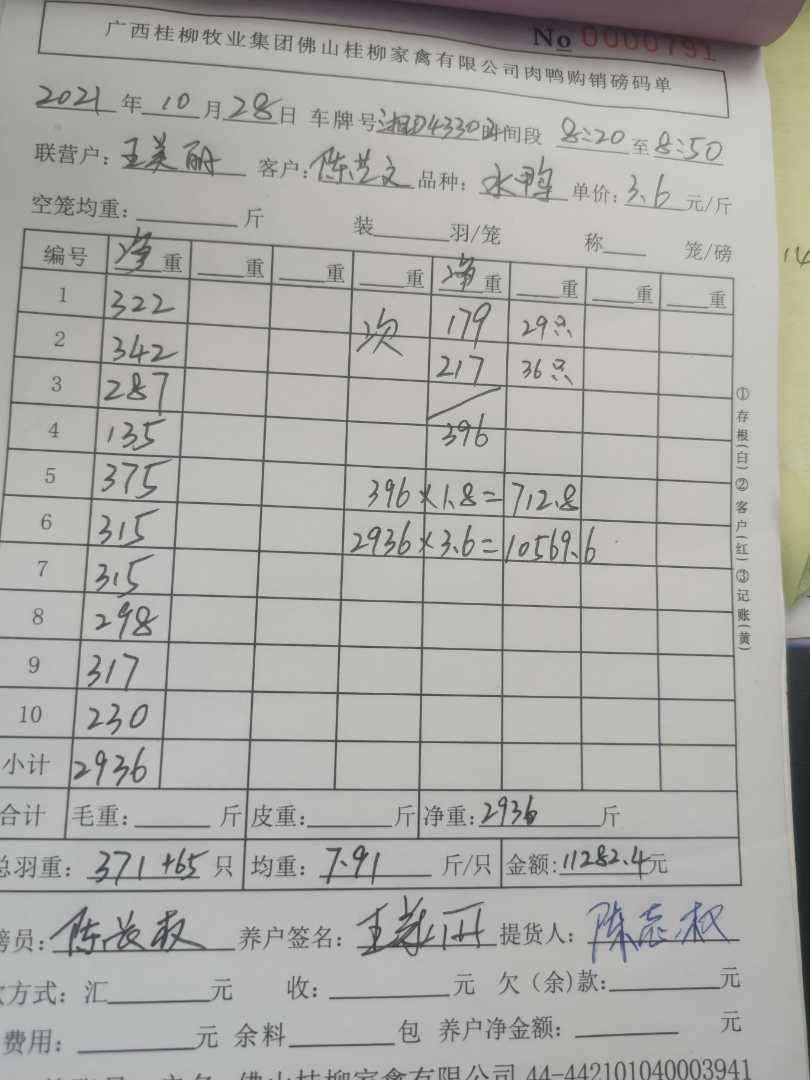 No 0000791
广西桂柳牧业集团佛山桂柳家禽有限公司肉鸭购销磅码单
2021 年 10 月 28 日 车牌号 湘D4330 时间段 8:20 至 8:50
联营户: 王美丽 客户: 陈艺文 品种: 水鸭 单价: 3.6 元/斤
空笼均重: 斤 装 羽/笼 称 笼/磅
编号 净重 重 重 重 净重 重 重 重
1 322 次 179 29只
2 342 217 36只
3 287
4 135 396
5 375 396×1.8=712.8
6 315 2936×3.6=10569.6
7 315
8 298
9 317
10 230
小计 2936
合计 毛重: 斤 皮重: 斤 净重: 2936 斤
总羽重: 371+65 只 均重: 7.91 斤/只 金额: 11282.4元
磅员: 养户签名: 王美丽 提货人: 陈志权
款方式: 汇 元 收: 元 欠(余)款: 元
费用: 元 余料 包 养户净金额: 元
佛山桂柳家禽有限公司 44-442101040003941
①存根(白)②客户(红)③记账(黄)